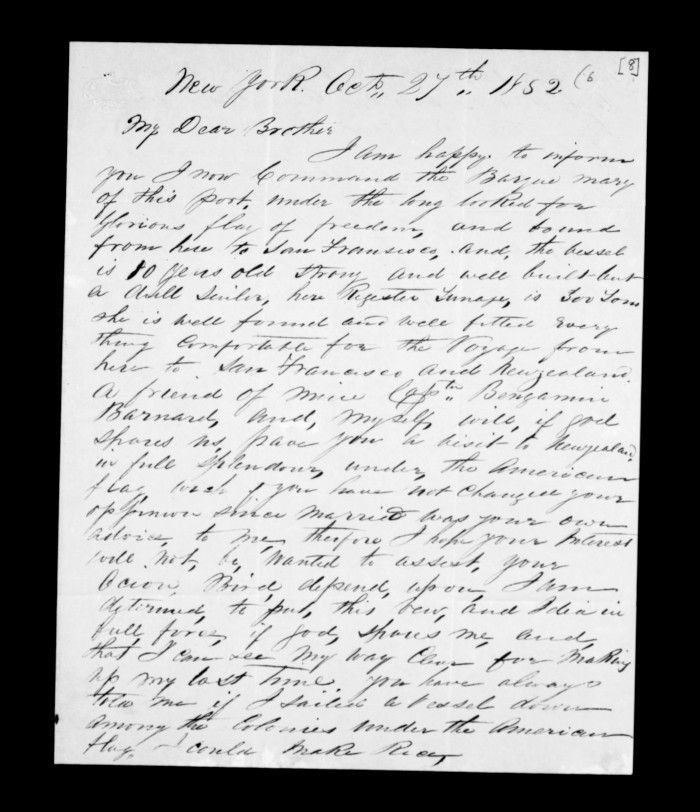 [8]
New York. Octb,, 27th,, 1852 (6
My Dear Brother
I am happy to inform
you I now Command the Barque mary
of this port, under the long looked for
Glorious flag of freedom, and bound
from here to San Fransisco, And, the vessel
is 10 years old strong and well built but
a dull Sailor, here Register Tunage, is 300 Tons
she is well found and well fitted Every
thing Comfortable for the Voyage from
here to San Francisco and Newzealand.
A friend of mine Captn Benjamin
Barnard, and, myself, will, if god
spares us, pave you a visit to Newzealand,
in full splendour, under, the American
flag, wich if you have not Changed your
oppinion since married was your own
advice, to me, therfore I hope your Interest
will not, be, wanted to assest, your
Ocion, Bird, depend, upon, I am
determed, to put, this vew, and Idea in
full force, if god, spares me, and,
that I can see my way Clear for making
up my lost Time. you have always
told me if I sailed a vessel down
among the Colonies under the American
flag, I could make Rice,